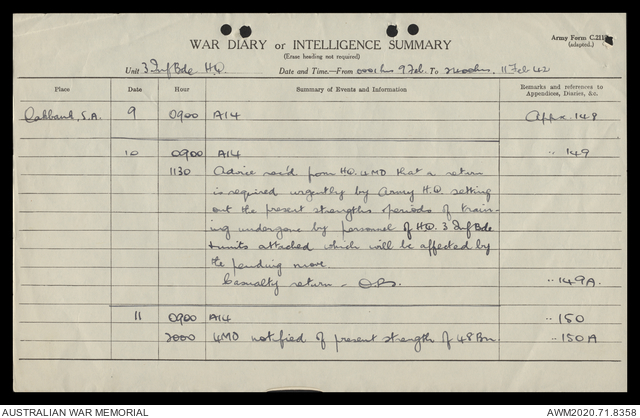 Army Form C.2118
(adapted.)
WAR DIARY or INTELLIGENCE SUMMARY
(Erase heading not required)
Unit 3 Inf Bde H.Q. Date and Time—From 0001 hrs 9 Feb. To 2400 hrs, 11 Feb 42
Place Date Hour Summary of Events and Information Remarks and references to Appendices, Diaries, &c.
Oakbank, S.A. 9 0900 A14 Appx. 148
10 0900 A14 " 149
1130 Advice rec'd from HQ. 4MD that a return
is required urgently by Army H.Q. setting
out the present strengths periods of train-
ing undergone by personnel of HQ. 3 Inf Bde
+ units attached which will be affected by
the pending move.
Casualty return - " 149A.
11 0900 A14 " 150
2000 4MD notified of present strength of 48 Bn " 150A
AUSTRALIAN WAR MEMORIAL AWM2020.71.8358